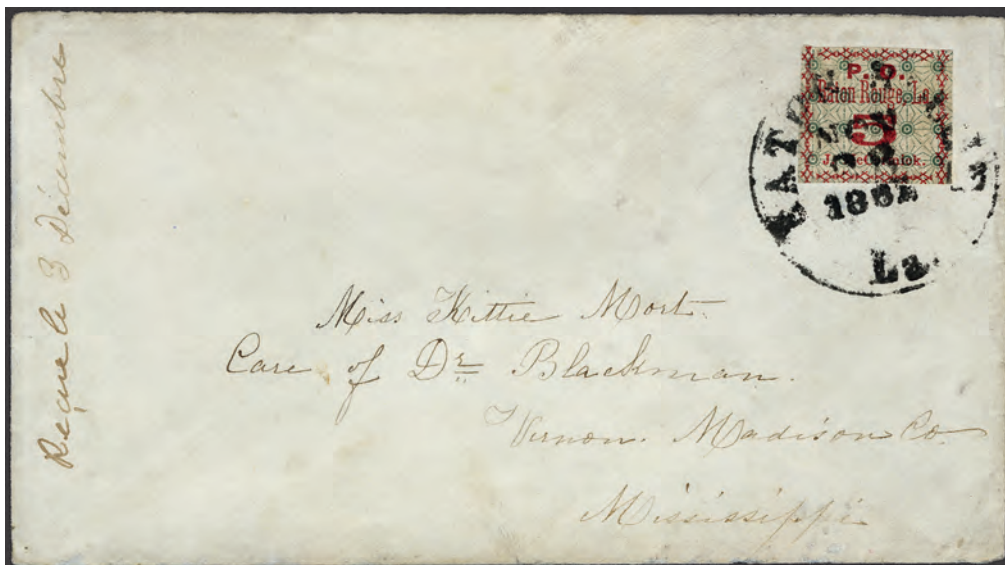 Reçue le 3 Décembre
P. D.
Baton Rouge, La.
5
BATON
NOV
1861
La.
Miss Kittie Mort.
Care of Dr Blackman.
Vernon. Madison Co
Mississippi